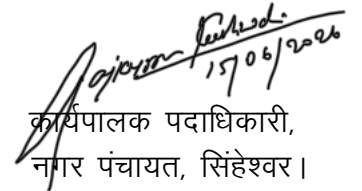 15/06/2026
कार्यपालक पदाधिकारी,
नगर पंचायत, सिंहेश्वर।